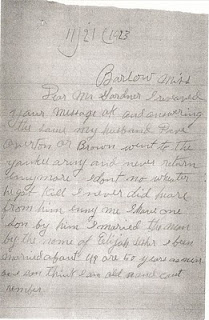 11/21 1923
Barlow Miss
Dear Mr Gardner I received
your message ok and answering
the same my husband
or Brown went to the
yankee army and never return
anymore I dont no whether
he got kill I never did hear
from him enny me I have one
son by him I married the man
by the name of Elijah I been
married about 48 are 50 years as near
as son think I am old and cant
rember